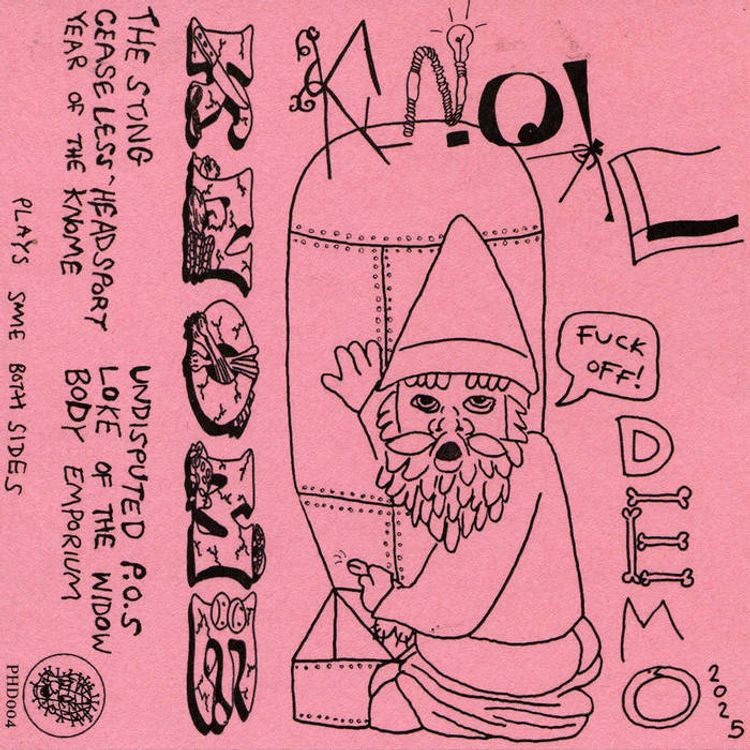 THE STING
CEASELESS HEADSPORT
YEAR OF THE KNOME
UNDISPUTED P.O.S
LOKE OF THE WIDOW
BODY EMPORIUM
PLAYS SAME BOTH SIDES
PHD004
KNOME
KNOME
FUCK
OFF!
DEMO
2025